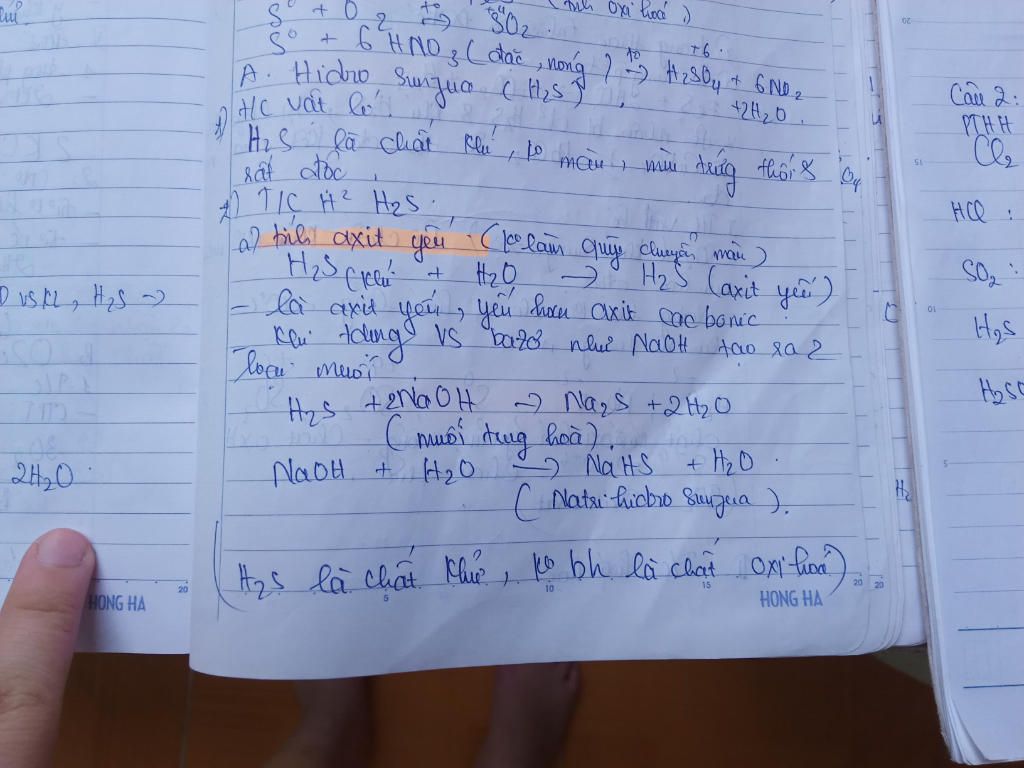 (tính oxi hoá)
S⁰ + O₂ →(t⁰) S⁺⁴O₂.
S⁰ + 6HNO₃ (đặc, nóng) →(t⁰) H₂S⁺⁶O₄ + 6NO₂
+2H₂O.
A. Hidro sunfua (H₂S)
1) T/C vật lí.
H₂S là chất khí, ko màu, mùi trứng thối &
rất độc.
2) T/C H² H₂S.
a) tính axit yếu. (ko làm quỳ chuyển màu)
H₂S (khí) + H₂O → H₂S (axit yếu)
- là axit yếu, yếu hơn axit cacbonic.
- khi tdụng vs bazơ như NaOH tạo ra 2
loại muối.
H₂S + 2NaOH → Na₂S + 2H₂O
(muối trung hoà)
NaOH + H₂O → NaHS + H₂O.
(Natri hidro sunfua).
(H₂S là chất khử, ko bh là chất oxi hoá)
5 10 15 20
HONG HA
vs KL, H₂S →
2H₂O.
20
HONG HA
Câu 2:
PTHH
Cl₂
HCl:
SO₂:
H₂S
H₂SO
20
15
10
5
H₂
20